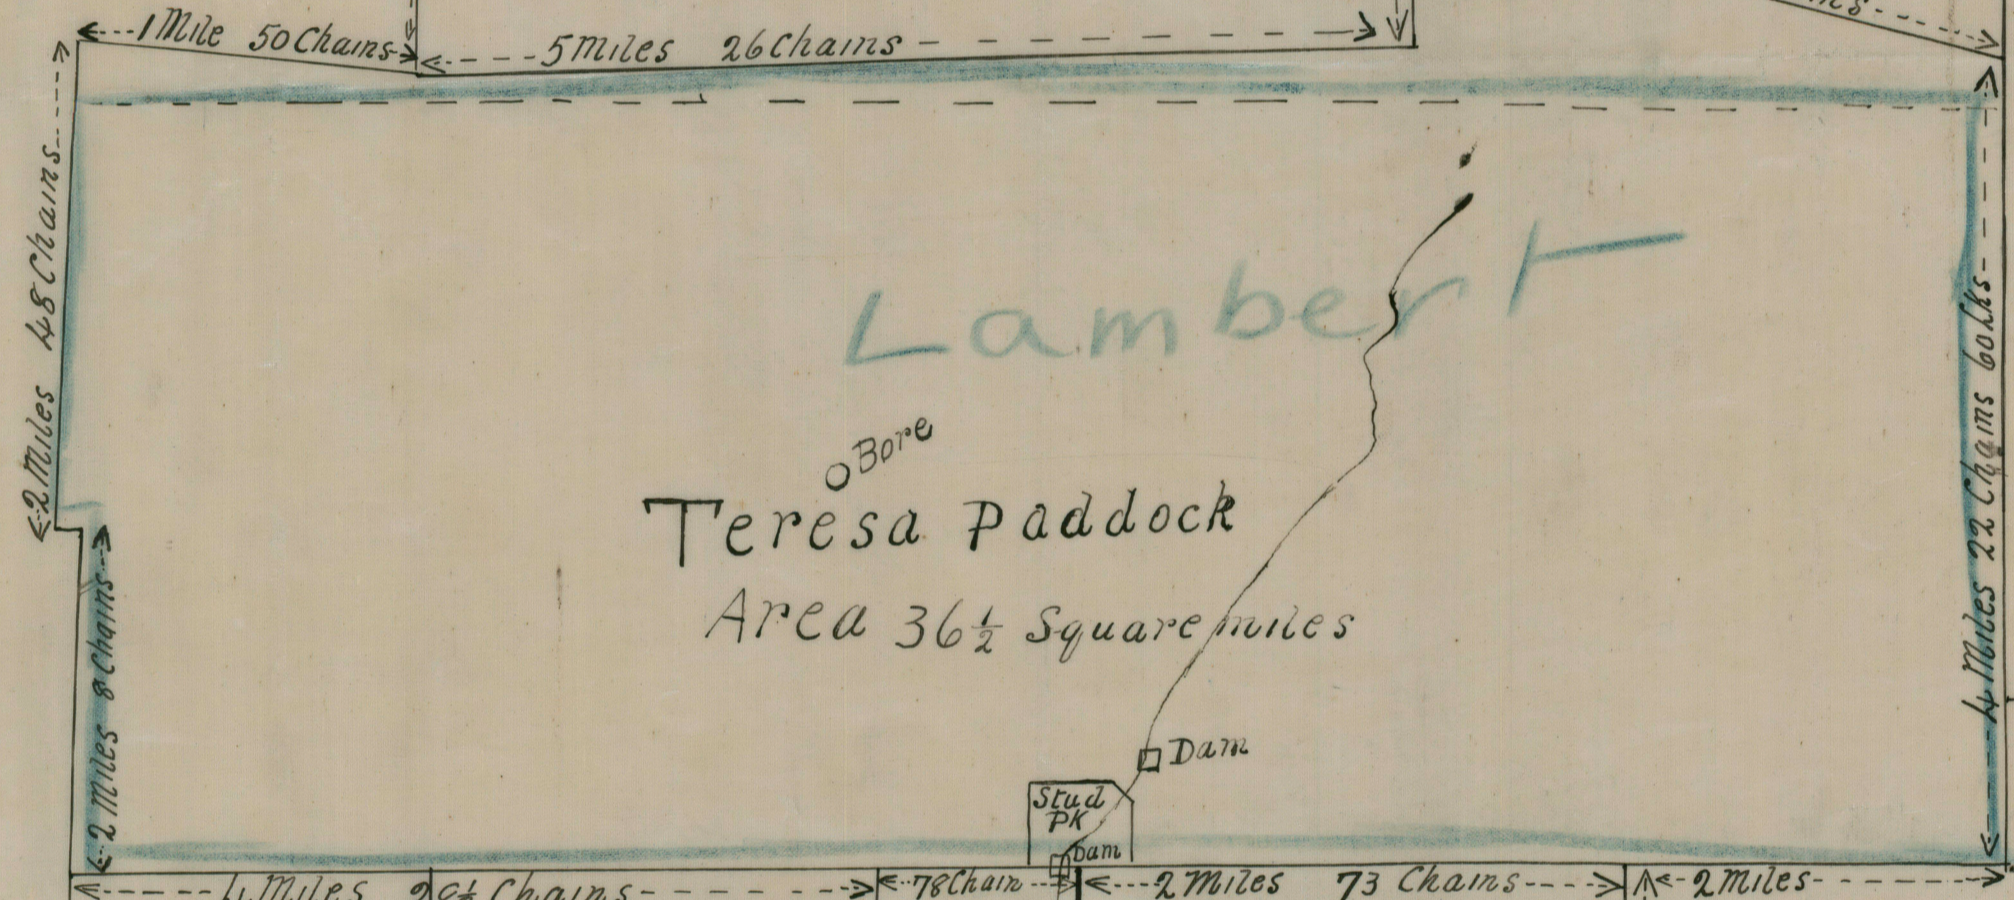 1 Mile 50 Chains
5 Miles 26 Chains
2 Miles 48 Chains
Lambert
4 Miles 22 Chains 60 Lks
Bore
Teresa Paddock
Area 36½ Square miles
2 Miles 8 Chains
Dam
Stud
PK
Dam
4 Miles Chains
78 Chain
2 Miles 73 Chains
2 Miles